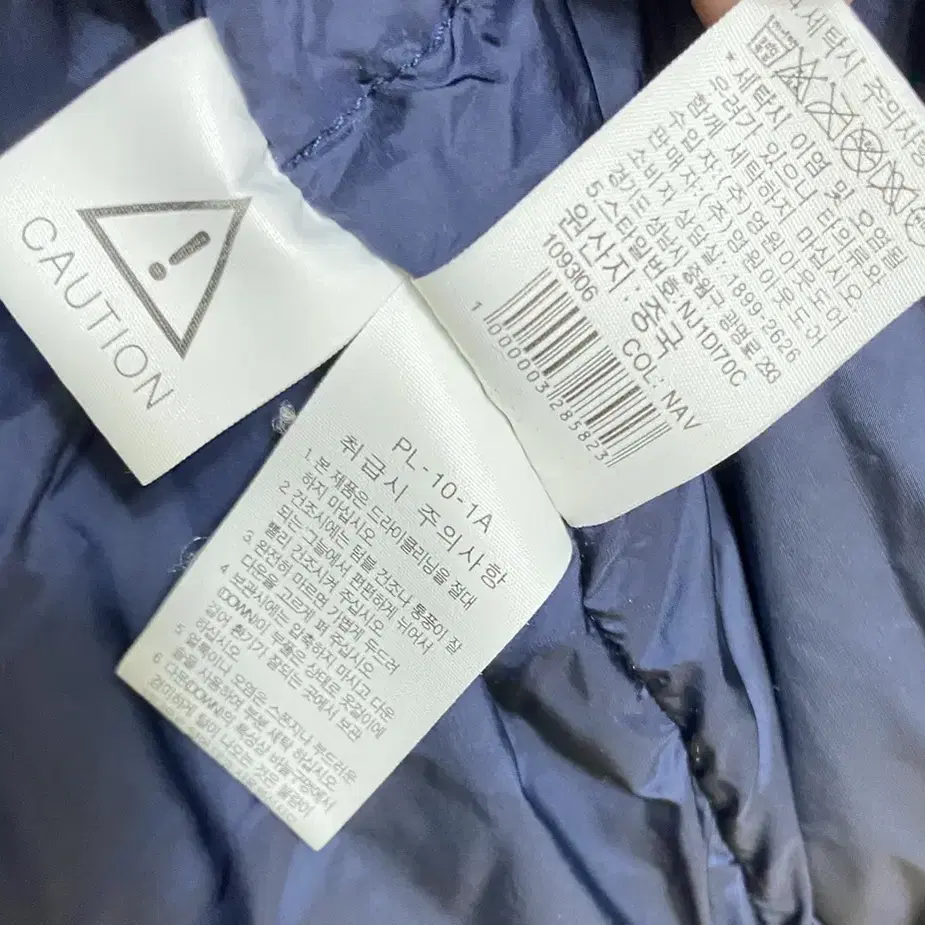 CAUTION
세탁시 주의사항
* 세탁시 이염 및 오염될
우려가 있으니 타의류와
함께 세탁하지 마십시오
수입자:(주)영원아웃도어
판매자:(주)영원아웃도어
소비자 상담실:1899-2626
경기도 성남시 중원구 광명로 293
스타일번호:NJ1DI70C
원산지:중국 COL: NAV
1093306
1 000003 285823
PL-10-1A
취급시 주의사항
1. 본 제품은 드라이클리닝을 절대
하지 마십시오
2 건조시에는 텀블 건조나 통풍이 잘
되는 그늘에서 편편하게 뉘어서
빨리 건조시켜 주십시오
3. 완전히 마르면 가볍게 두드려
다운을 고르게 펴 주십시오
4 보관시에는 압축하지 마시고 다운
(DOWN)이 부풀은 상태로 옷걸이에
걸어 환기가 잘되는 곳에서 보관
하십시오
5 얼룩이나 오염은 스폰지나 부드러운
솔을 사용하여 부분 세탁 하십시오
6 다운(DOWN)의 특성상 바늘 구멍에서
경미하게 털이 나오는 것은 불량이